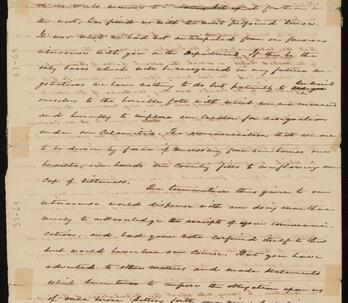 the west, has filled us with the most profound sorrow.
It was what we had not anticipated from our former
intercourse with you or the Department. If this be the
only basis which will be recognized in any future ne
gotiations we have nothing to do but patiently to submit
ourselves to the horrible fate with which we are menaced
and humbly to implore our Creator for resignation
under our Calamities. The that we are
to be driven by force of necessity from our homes our
hearths, our lands our Country fills to overflowing our
Cup of bitterness.
The termination thus given to our
intercourse would dispense with our doing more than
merely to acknowledge the receipt of your communi-
cations, and had your note confined itself to this
but would have been our Course. But you have
adverted to other matters and made statements
which have to impose the obligation upon us
of once more
37-09
37-09